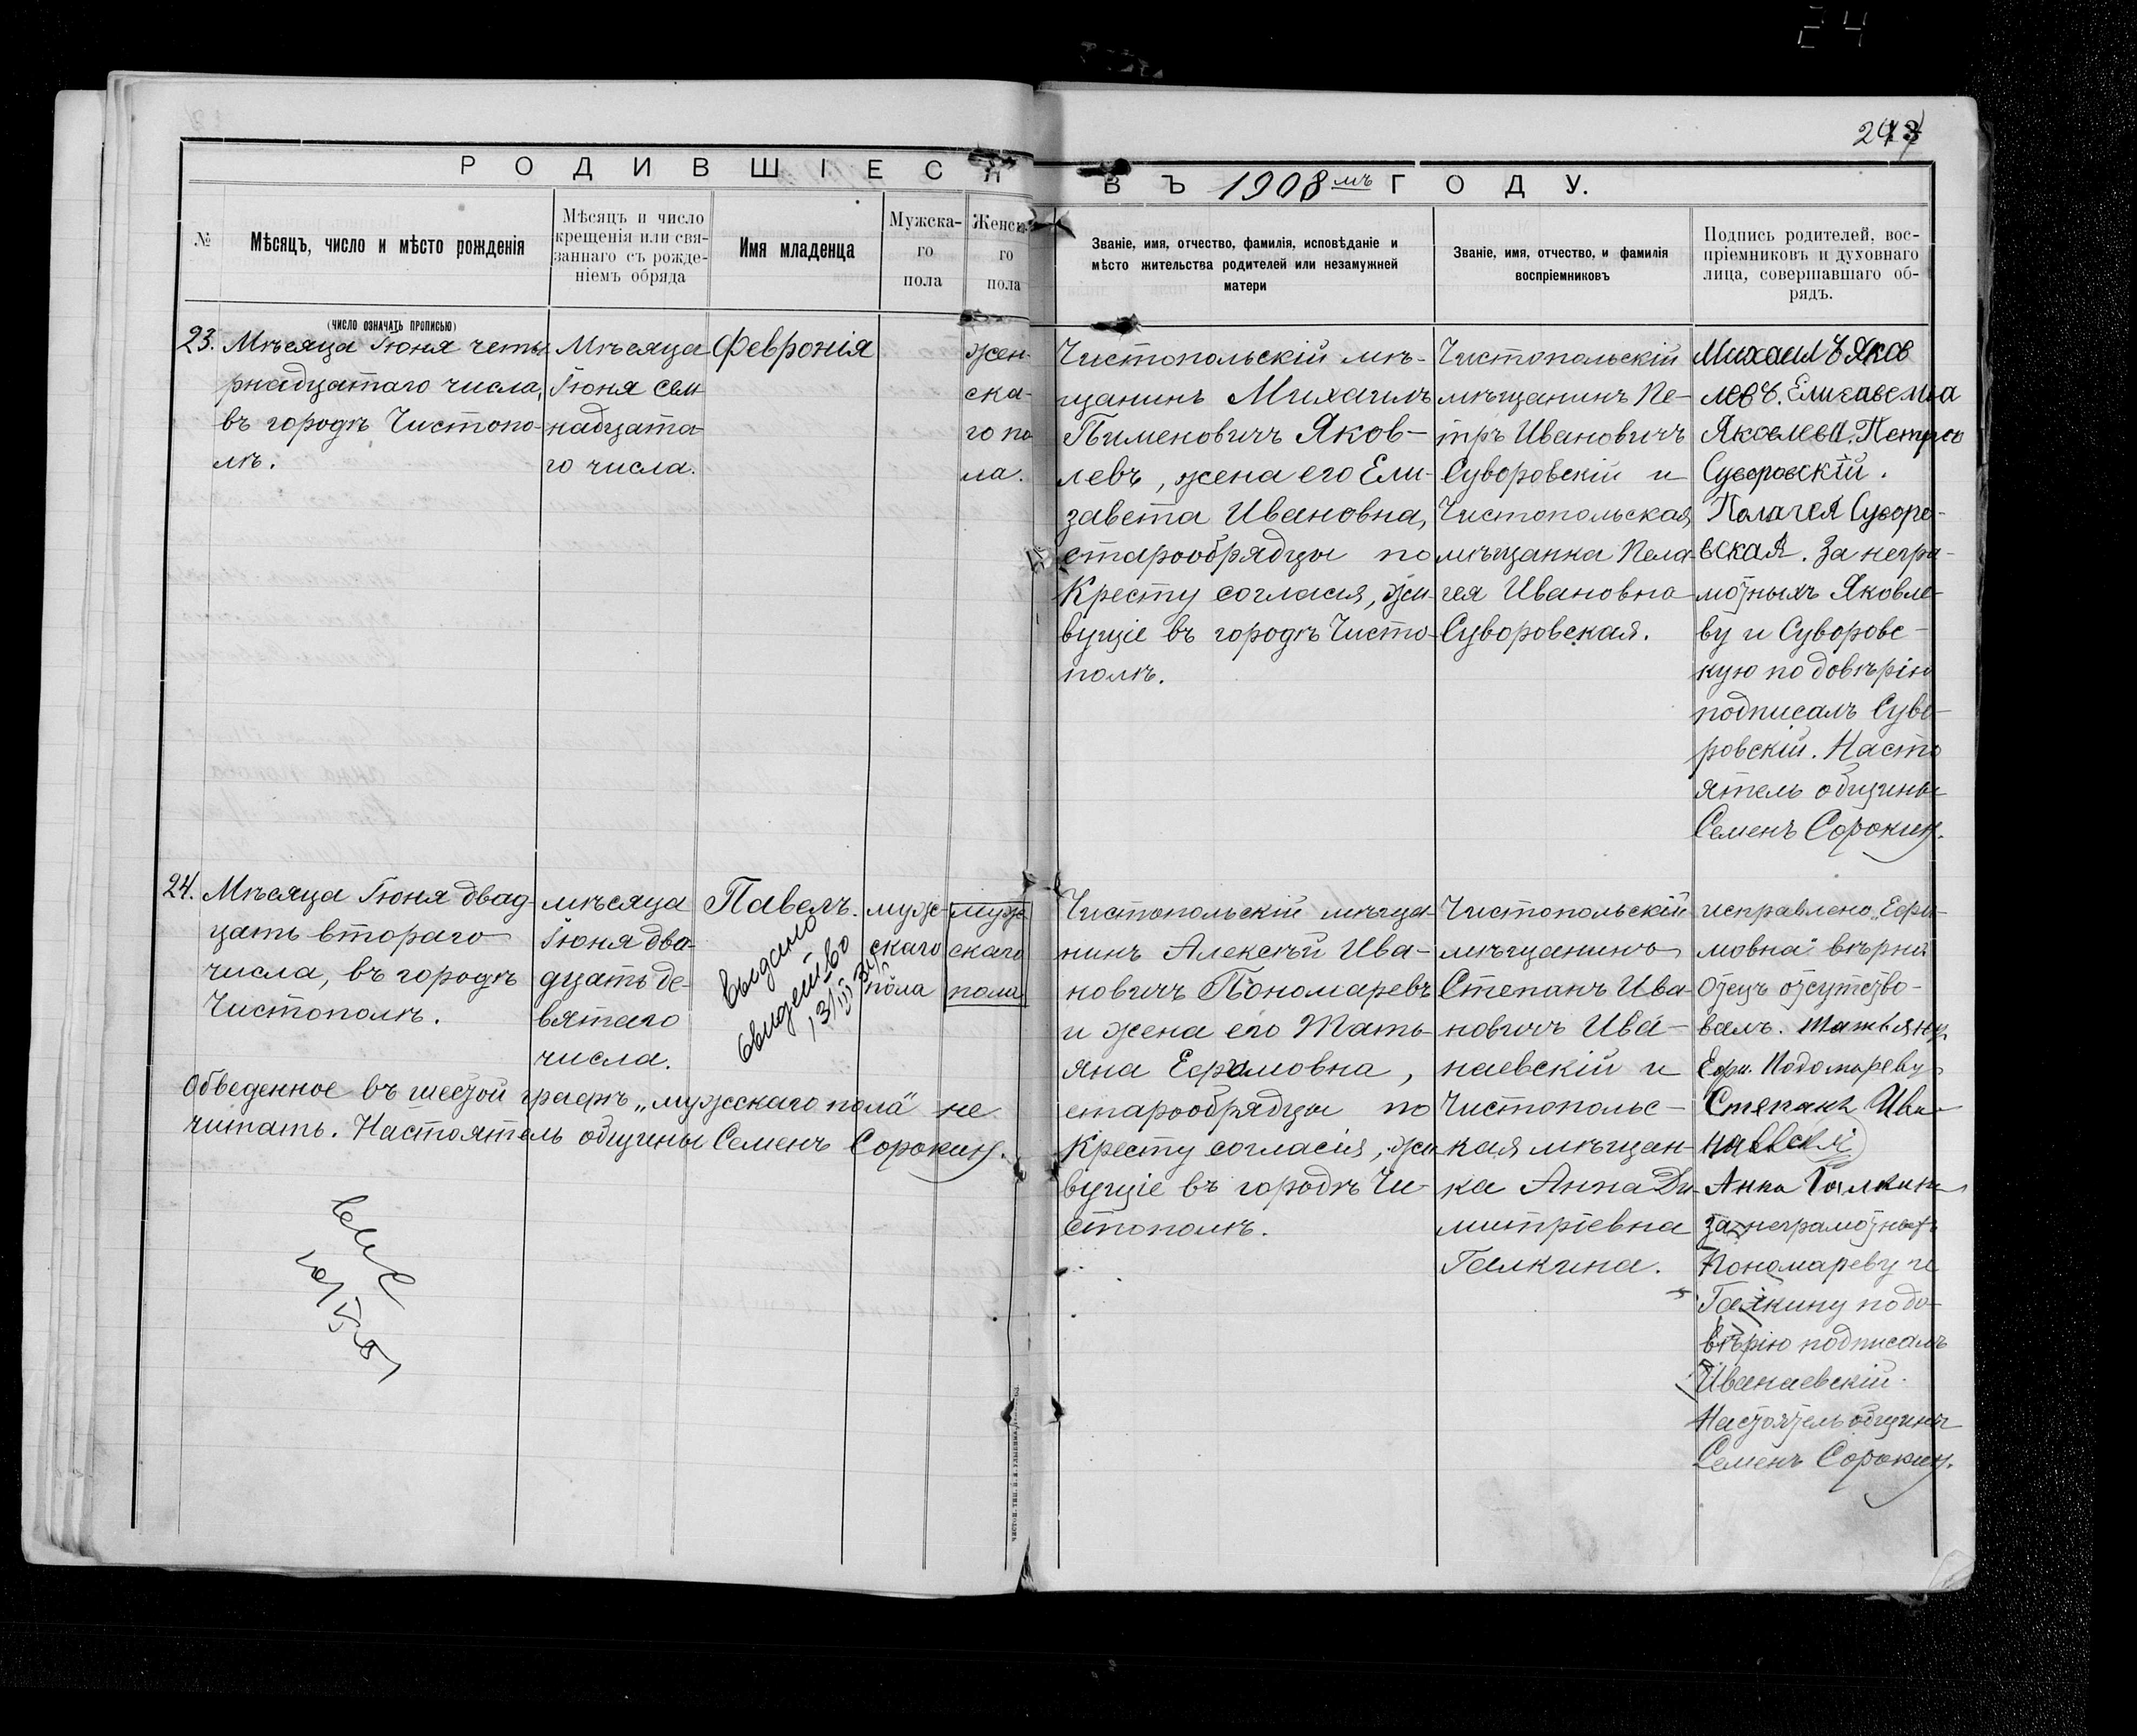 24
РОДИВШІЕСЯ ВЪ 1908мъ ГОДУ.
№
Мѣсяцъ, число и мѣсто рожденія
Мѣсяцъ и число
крещенія или свя-
заннаго съ рожде-
ніемъ обряда
Имя младенца
Мужска-
го
пола
Женска-
го
пола
Званіе, имя, отчество, фамилія, исповѣданіе и
мѣсто жительства родителей или незамужней
матери
Званіе, имя, отчество, и фамилія
воспріемниковъ
Подпись родителей, вос-
пріемниковъ и духовнаго
лица, совершавшаго об-
рядъ.
(число означать прописью)
23.
Мѣсяца Іюня четы
рнадцатаго числа,
въ городѣ Чистопо-
лѣ.
Мѣсяца
Іюня сем
надцата-
го числа.
Февронія
жен-
ска-
го по
ла.
Чистопольскій мѣ-
щанинъ Михаилъ
Пименовичъ Яков-
левъ, жена его Ели-
завета Ивановна,
старообрядцы по
Кресту согласія, жи-
вущіе въ городѣ Чисто-
полѣ.
Чистопольскій
мѣщанинъ Пе-
тръ Ивановичъ
Суворовскій и
Чистопольская
мѣщанка Пела
гея Ивановна
Суворовская.
Михаилъ Яков
левъ. Елизавета
Яковлева. Петръ
Суворовскій.
Палагея Суворо-
вская. За негра-
мотныхъ Яковле-
ву и Суворовс-
кую по довѣрію
подписалъ Суво-
ровскій. Насто
ятель общины
Семенъ Сорокин.
24.
Мѣсяца Іюня двад
цать втораго
числа, въ городѣ
Чистополѣ.
мѣсяца
Іюня два-
дцать де-
вятаго
числа.
Павелъ.
Выдано
свидет-во
муж-
скаго
пола
муж
скаго
пола
Обведенное въ шестой графѣ „мужскаго пола“ не
читать. Настоятель общины Семенъ Сорокин.
Чистопольскій мѣща-
нинъ Алексѣй Ива-
новичъ Пономаревъ
и жена его Тать-
яна Ефимовна,
старообрядцы по
Кресту согласія, жи
вущіе въ городѣ Чи-
стополѣ.
Чистопольскій
мѣщанинъ
Степанъ Ива
новичъ Ива-
наевскій и
Чистопольс-
кая мѣщан-
ка Анна Ди-
митріевна
Галкина.
исправлено „Ефи-
мовна“ вѣрно
Отецъ отсутство-
валъ. Татьяну
Ефи. Пономареву
Степанъ Ива-
наевскій
Анна Галкин
за неграмотность
Пономареву и
Галкину по до-
вѣрію подписалъ
Иванаевскій.
Настоятель общины
Семенъ Сорокин.